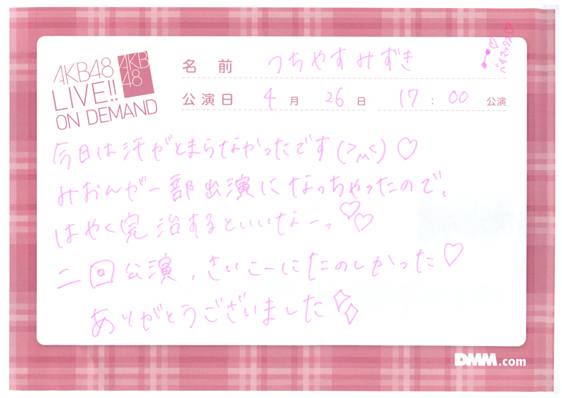 AKB48
LIVE!!
ON DEMAND
AKB
48
名前 つちやすみずき
ベイマックス♡
公演日 4月 26日 17:00 公演
今日は汗がとまらなかったです(>_<)♡
みおんが一部出演になっちゃったので、
はやく完治するといいなーっ♡♡
二回公演、さいこーにたのしかった♡
ありがとうございました
DMM.com